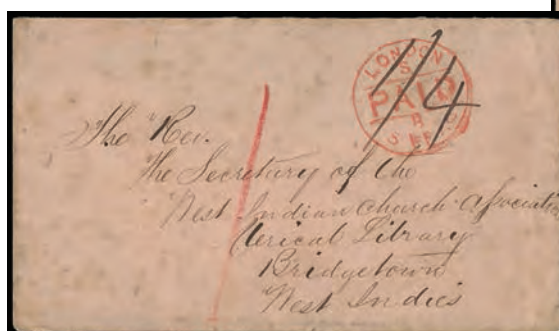 LONDON
S
PAID
1/4
The Rev.
The Secretary of the
West Indian Church Association
Clerical Library
Bridgetown
West Indies